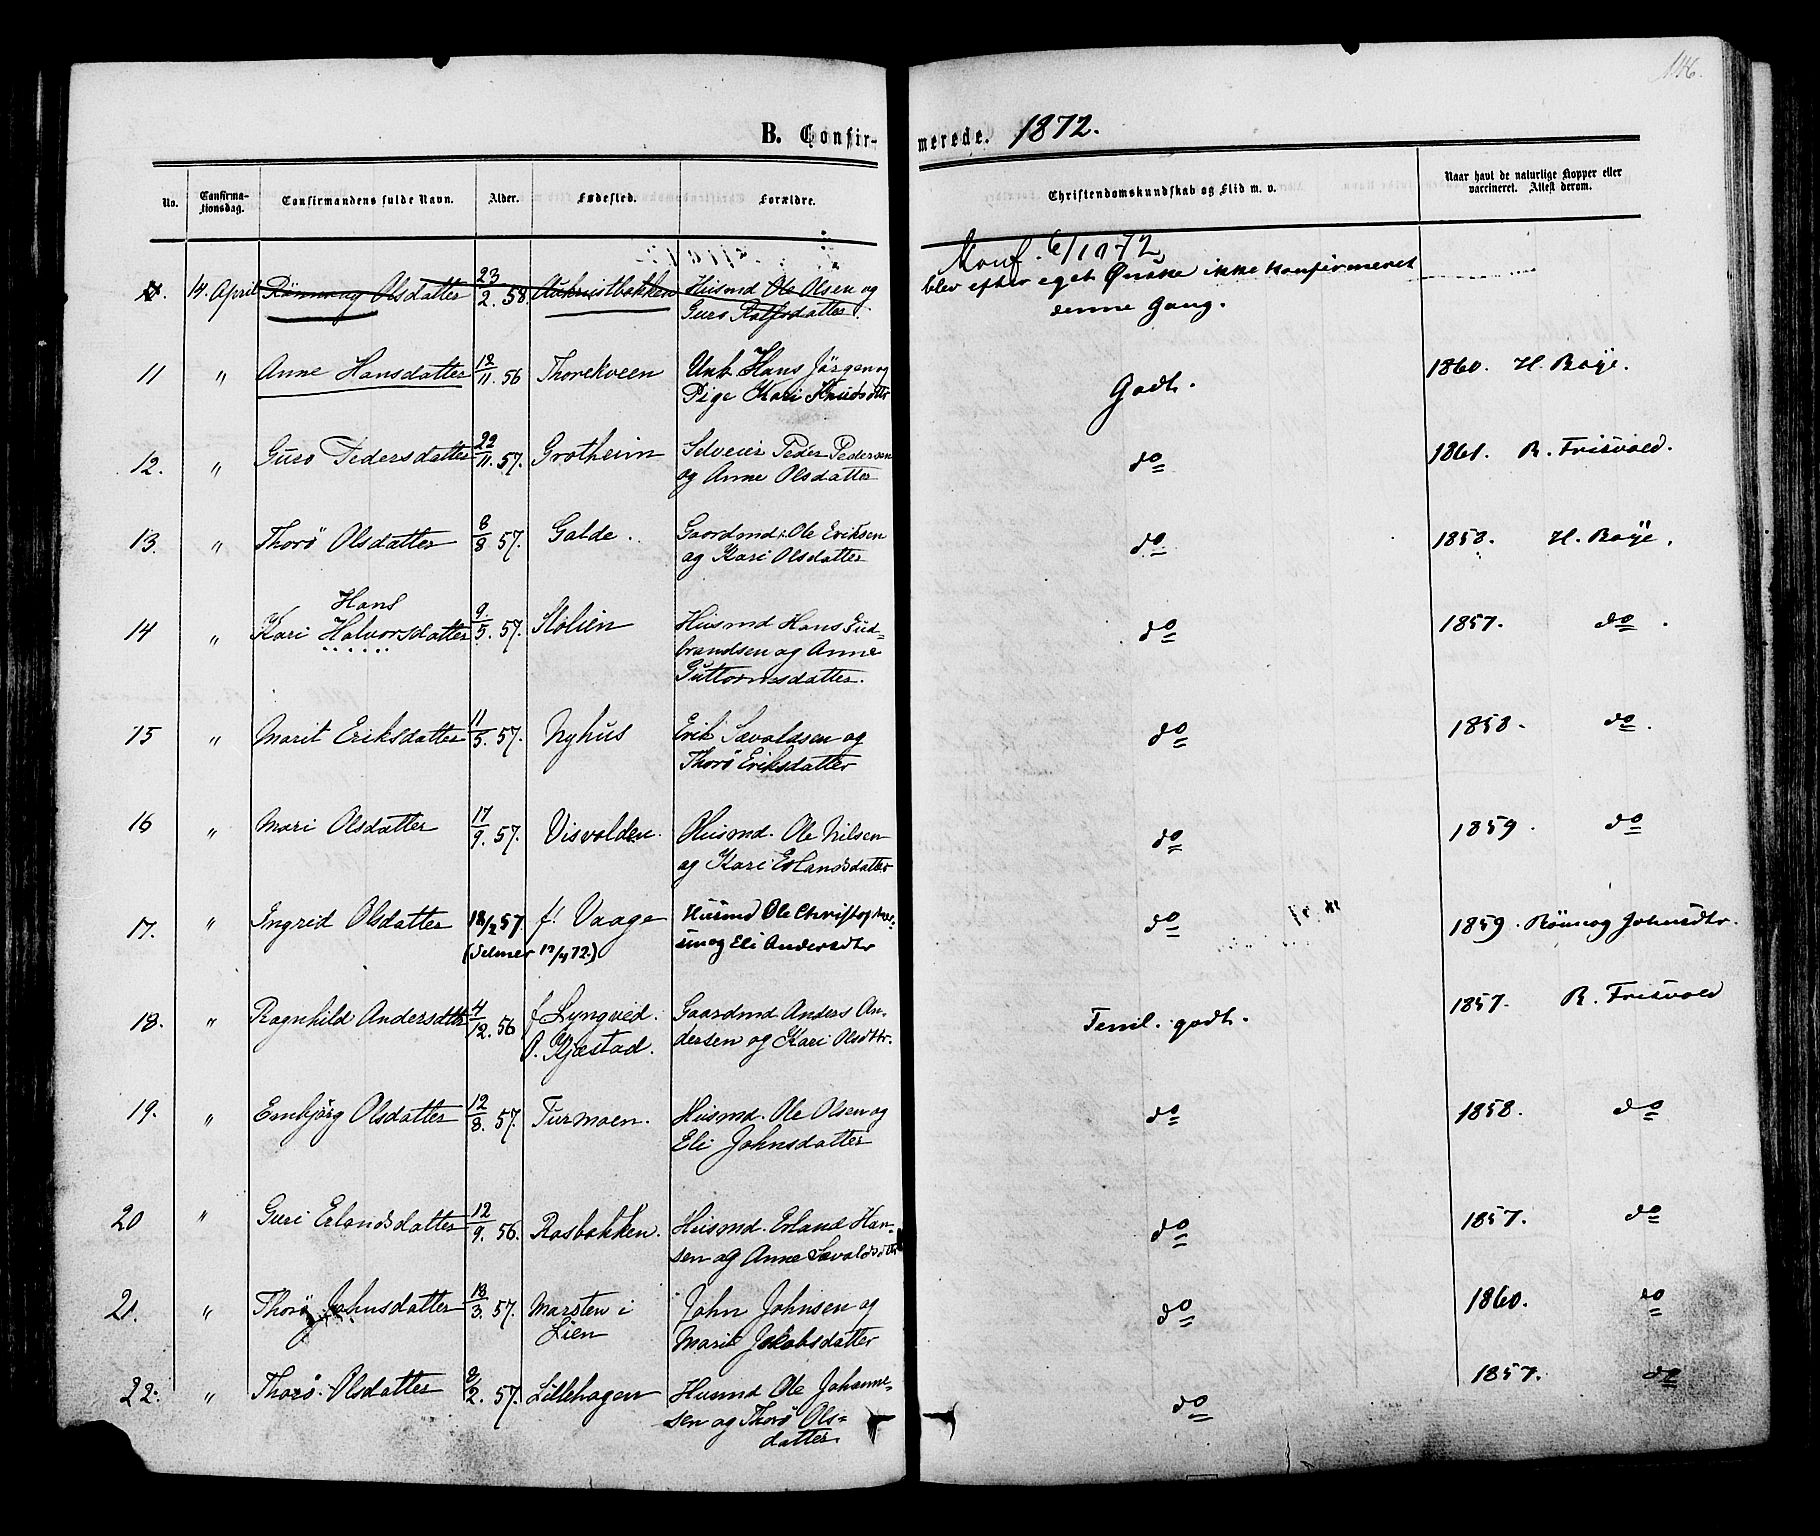 146.
B. Confir-
merede. 1872.
No.
Confirma-
tionsdag.
Confirmandens fulde Navn.
Alder.
Fødested.
Forældre.
Christendomskundskab og Flid m. v.
Naar havt de naturlige Kopper eller
vaccineret. Attest derom.
14. April Rönnaug Olsdatter 23/2. 58 Aukrustbakken Husmd Ole Olsen og
Guro Rolfsdatter.
Konf. 6/10 72
blev efter eget Ønske ikke konfirmeret
denne Gang.
11 " Anne Hansdatter 12/11. 56 Thorekveen Unk Hans Jörgen og
Pige Kari Knudsdtr
Godt. 1860. H. Boye.
12. " Guro Pedersdatter 22/11. 57. Grotheim Selveier Peder Pedersen
og Anne Olsdatter
do 1861. R. Frisvold.
13. " Thorö Olsdatter 8/8 57. Galde. Gaardmd. Ole Eriksen
og Kari Olsdatter
do 1858. H. Boye.
Hans
14 " Kari Halvorsdatter 9/5. 57. Stolien Husmd Hans Gud-
brandsen og Anne
Guttormsdatter.
do 1857. do.
15 " Marit Eriksdatter 11/5. 57. Nyhus Erik Sævaldsen og
Thorö Eriksdatter
do 1858. do.
16 " Mari Olsdatter 17/9. 57. Visvolden. Husmd. Ole Nilsen
og Kari Erlandsdatter
do 1859. do
17. " Ingrid Olsdatter 18/2 57. f! Vaage Husmd Ole Christophe-
sen og Eli Andersdtr
(Selmer 12/4 72.)
do 1859. Rönnog Johnsdtr.
18. " Ragnhild Andersdttr 4/12. 56 f Lyngved. Gaardmd Anders An-
O. Kjæstad. dersen og Kari Olsdttr.
Temil. godt. 1857. R. Frisvold
19. " Embjörg Olsdatter 12/8. 57. Furmoen. Husmd. Ole Olsen og
Eli Johnsdatter
do 1858. do
20 " Guri Erlandsdatter 12/9. 56. Rasbakken. Husmd. Erland Han-
sen og Anne Sævaldsdtr
do 1857. do
21. " Thorö Johnsdatter 18/3. 57. Marsten i John Johnsen og
Lien Marit Jakobsdatter
do 1860. do
22. " Thorö Olsdatter 2/2. 57. Lillehagen Husmd Ole Johanne-
sen og Thorö Ols-
datter.
do 1857. do